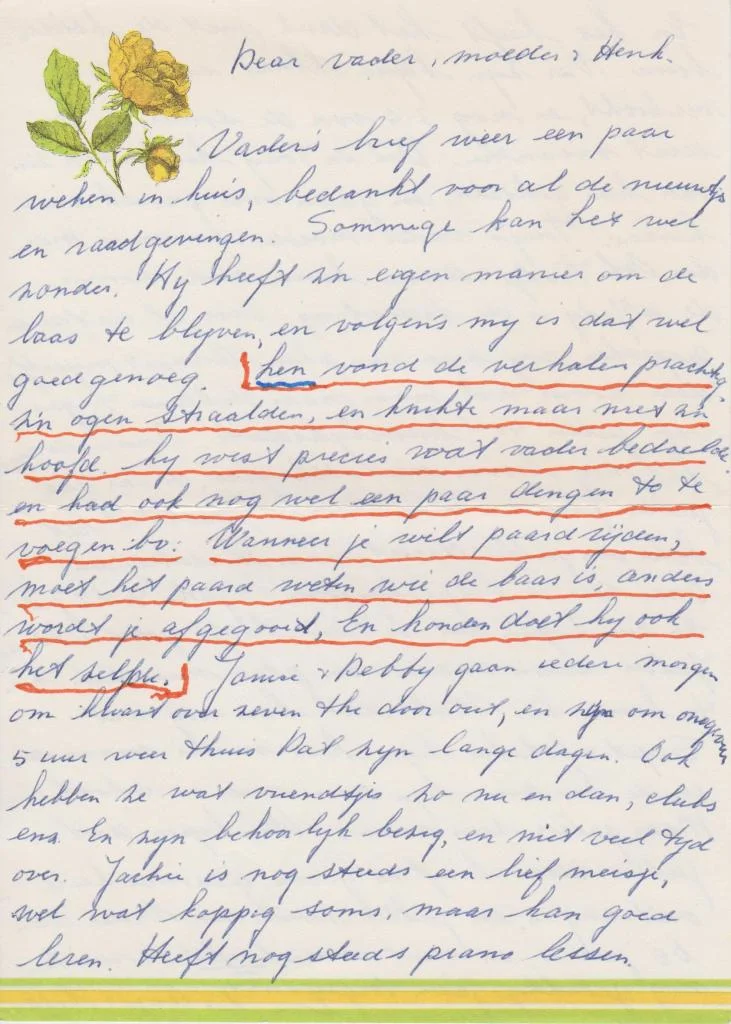 Dear vader, moeder & Henk.
Vader's brief weer een paar
weken in huis, bedankt voor al de nieuwtjs
en raadgevingen. Sommige kan het wel
zonder. Hy heeft z'n eigen manier om de
baas te blyven, en volgens my is dat wel
goed genoeg. Ken vond de verhalen prachtig,
z'n ogen straalden, en knikte maar met z'n
hoofd. hy wist precies wat vader bedoelde.
en had ook nog wel een paar dingen to te
voegen bv: Wanneer je wilt paardrijden,
moet het paard weten wie de baas is, anders
wordt je afgegooit, En honden doet hy ook
het selfde. Janise & Debby gaan iedere morgen
om kwart over zeven the door out, en zyn om ongeveer
5 uur weer thuis Dat zyn lange dagen. Ook
hebben ze wat vriendtjis zo nu en dan, clubs
enz. En zyn behoorlyk bezig, en niet veel tyd
over. Jackie is nog steeds een lief meisje,
wel wat koppig soms, maar kan goed
leren. Heeft nog steeds piano lessen.